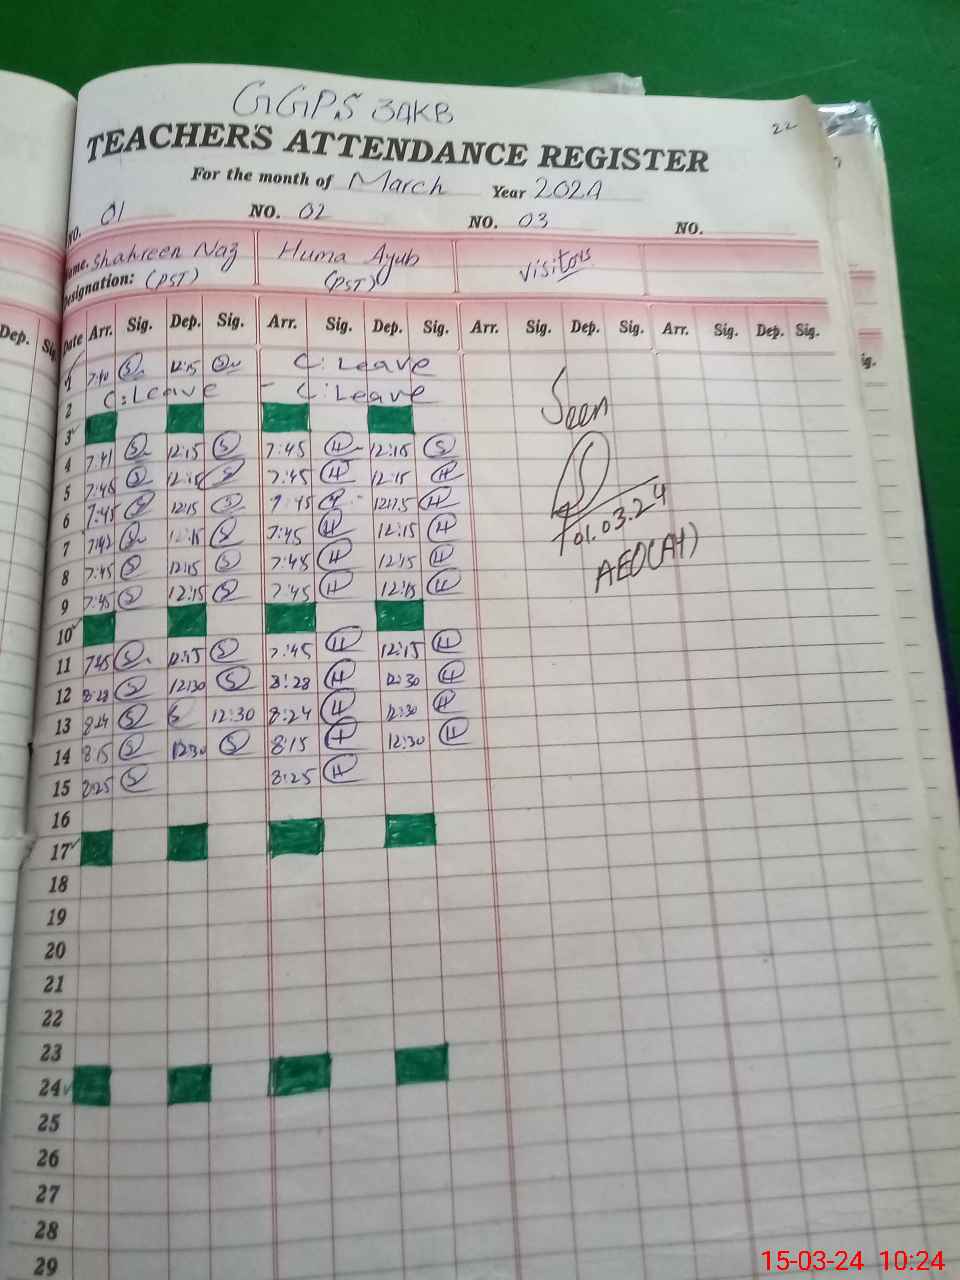 GGPS 34KB
22
TEACHERS ATTENDANCE REGISTER
For the month of March Year 2024
NO. 01 NO. 02 NO. 03 NO.
Name. Shahreen Naz Huma Ayub visitors
Designation: (PST) (PST)
Dep. Date Arr. Sig. Dep. Sig. Arr. Sig. Dep. Sig. Arr. Sig. Dep. Sig. Arr. Sig. Dep. Sig.
1 7:40 S 12:15 S C:Leave
2 C:Leave - C:Leave
Seen
3
4 7:41 S 12:15 S 7:45 H 12:15 S
5 7:45 S 12:15 S 7:45 H 12:15 H
6 7:45 S 12:15 S 7:45 H 12:15 H
01.03.24
7 7:42 S 12:15 S 7:45 H 12:15 H
AEO(A4)
8 7:45 S 12:15 S 7:45 H 12:15 H
9 7:45 S 12:15 S 7:45 H 12:15 H
10
11 7:45 S 12:15 S 7:45 H 12:15 H
12 8:28 S 12:30 S 8:28 H 12:30 H
13 8:24 S S 12:30 8:24 H 12:30 H
14 8:15 S 12:30 S 8:15 H 12:30 H
15 8:25 S 8:25 H
16
17
18
19
20
21
22
23
24
25
26
27
28
29
15-03-24 10:24